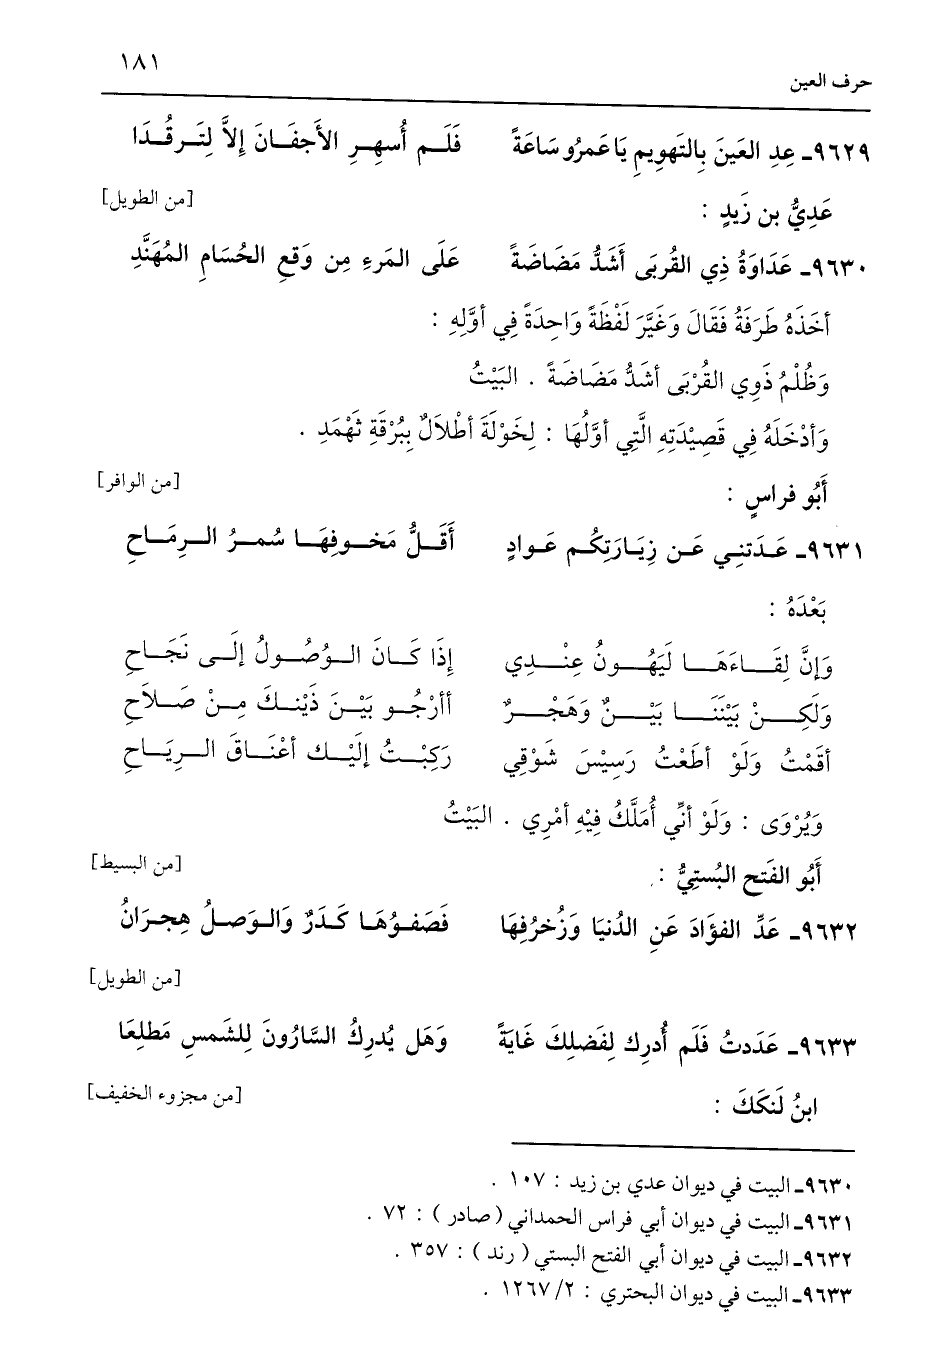 ١٨١
حرف العين
٩٦٢٩ـ عِدِ العَينَ بِالتَهوِيمِ يَا عَمرُو سَاعَةً فَلَـم أُسهِـرِ الأَجفَـانَ إِلاَّ لِتَـرقُـدَا
[من الطويل]
عَدِيُّ بن زَيدٍ :
٩٦٣٠ـ عَدَاوَةُ ذِي القُربَى أَشَدُّ مَضَاضَةً عَلَى المَرءِ مِن وَقعِ الحُسَامِ المُهَنَّدِ
أخَذَهُ طَرَفَةُ فَقَالَ وَغَيَّرَ لَفْظَةً وَاحِدَةً فِي أوَّلِهِ :
وَظُلْمُ ذَوِي القُرْبَى أشَدُّ مَضَاضَةً . البَيْتُ
وَأدْخَلَهُ فِي قَصِيْدَتِهِ الَّتِي أوَّلُهَا : لِخَوْلَةَ أطْلاَلٌ بِبُرْقَةِ ثَهْمَدِ .
[من الوافر]
أَبُو فراسٍ :
٩٦٣١ـ عَـدَتنِـي عَـن زِيَـارَتِكُـم عَـوادٍ أَقَـلُّ مَخـوفِهَـا سُمـرُ الـرِمَـاحِ
بَعْدَهُ :
وَإنَّ لِقَـاءَهَـا لَيَهُـونُ عِنْـدِي إذَا كَـانَ الـوُصُـولُ إلَـى نَجَـاحِ
وَلَكِـنْ بَيْنَنَـا بَيْـنٌ وَهَجْـرٌ أأرْجُـو بَيْـنَ ذَيْنِـكَ مِـنْ صَـلاَحِ
أقَمْتُ وَلَوْ أطَعْتُ رَسِيْسَ شَوْقِي رَكِبْـتُ إلَيْـكَ أعْنَـاقَ الـرِيَـاحِ
وَيُرْوَى : وَلَوْ أنِّي أُمَلَّكُ فِيْهِ أمْرِي . البَيْتُ
[من البسيط]
أَبُو الفَتح البُستِيُّ :
٩٦٣٢ـ عَدِّ الفؤَادَ عَنِ الدُنيَا وَزُخرُفِهَا فَصَفـوُهَـا كَـدَرٌ وَالـوَصـلُ هِجـرَانُ
[من الطويل]
٩٦٣٣ـ عَدَدتُ فَلَم أُدرِك لِفَضلِكَ غَايَةً وَهَل يُدرِكُ السَّارُونَ لِلشَمسِ مَطلِعَا
[من مجزوء الخفيف]
ابنُ لَنكَكَ :
٩٦٣٠ـ البيت في ديوان عدي بن زيد : ١٠٧ .
٩٦٣١ـ البيت في ديوان أبي فراس الحمداني (صادر) : ٧٢ .
٩٦٣٢ـ البيت في ديوان أبي الفتح البستي (رند) : ٣٥٧ .
٩٦٣٣ـ البيت في ديوان البحتري : ٢/ ١٢٦٧ .